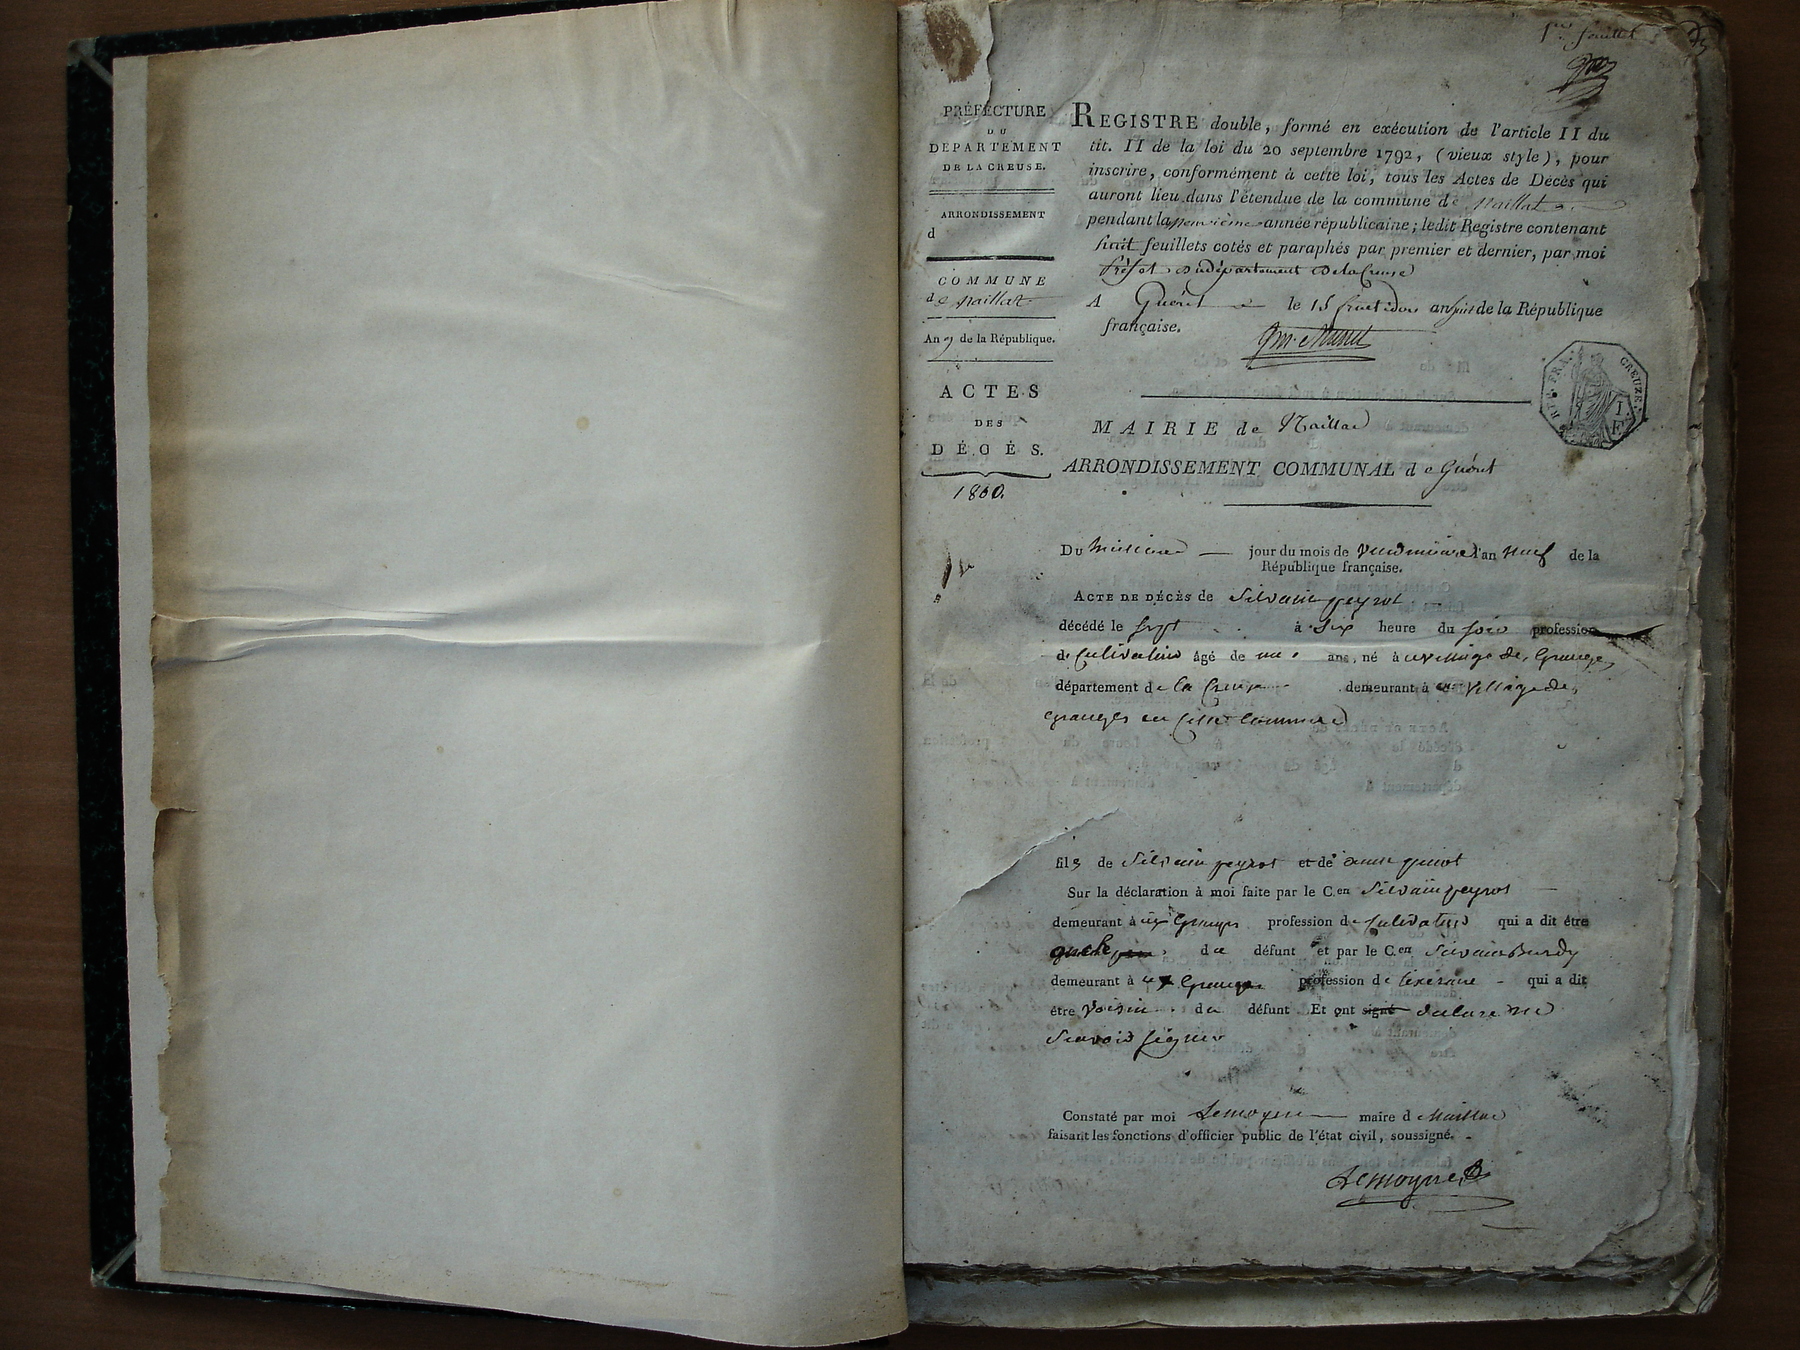 1.er feuillet
PRÉFECTURE
DU
DÉPARTEMENT
DE LA CREUSE.
ARRONDISSEMENT
d
COMMUNE
de Naillat
An 9 de la République.
ACTES
DES
DÉCÈS.
1800.
REGISTRE double, formé en exécution de l'article II du
tit. II de la loi du 20 septembre 1792, (vieux style), pour
inscrire, conformément à cette loi, tous les Actes de Décès qui
auront lieu dans l'étendue de la commune de Naillat
pendant la neuvième année républicaine; ledit Registre contenant
huit feuillets cotés et paraphés par premier et dernier, par moi
Préfet du département de la Creuse
A Guéret le 15 fructidor an huit de la République
française.
RÉP. FRA.
CREUZE.
MAIRIE de Naillac
ARRONDISSEMENT COMMUNAL de Guéret
Du jour du mois de vendémiaire l'an neuf de la
République française.
ACTE DE DÉCÈS de Silvain peyrot
décédé le sept à six heure du soir profession
de Cultivateur âgé de ans, né à au village des Granges,
département de la Creuse demeurant à au village des
granges en cette commune
fils de Silvain peyrot et de anne
Sur la déclaration à moi faite par le C.en Silvain peyrot
demeurant à aux Granges profession de cultivateur qui a dit être
du défunt et par le C.en Silvain Burdy
demeurant à aux Granges profession de qui a dit
être voisin du défunt Et ont signé déclaré ne
savoir signer
Constaté par moi Lemoyne maire d Naillac
faisant les fonctions d'officier public de l'état civil, soussigné.
Lemoyne